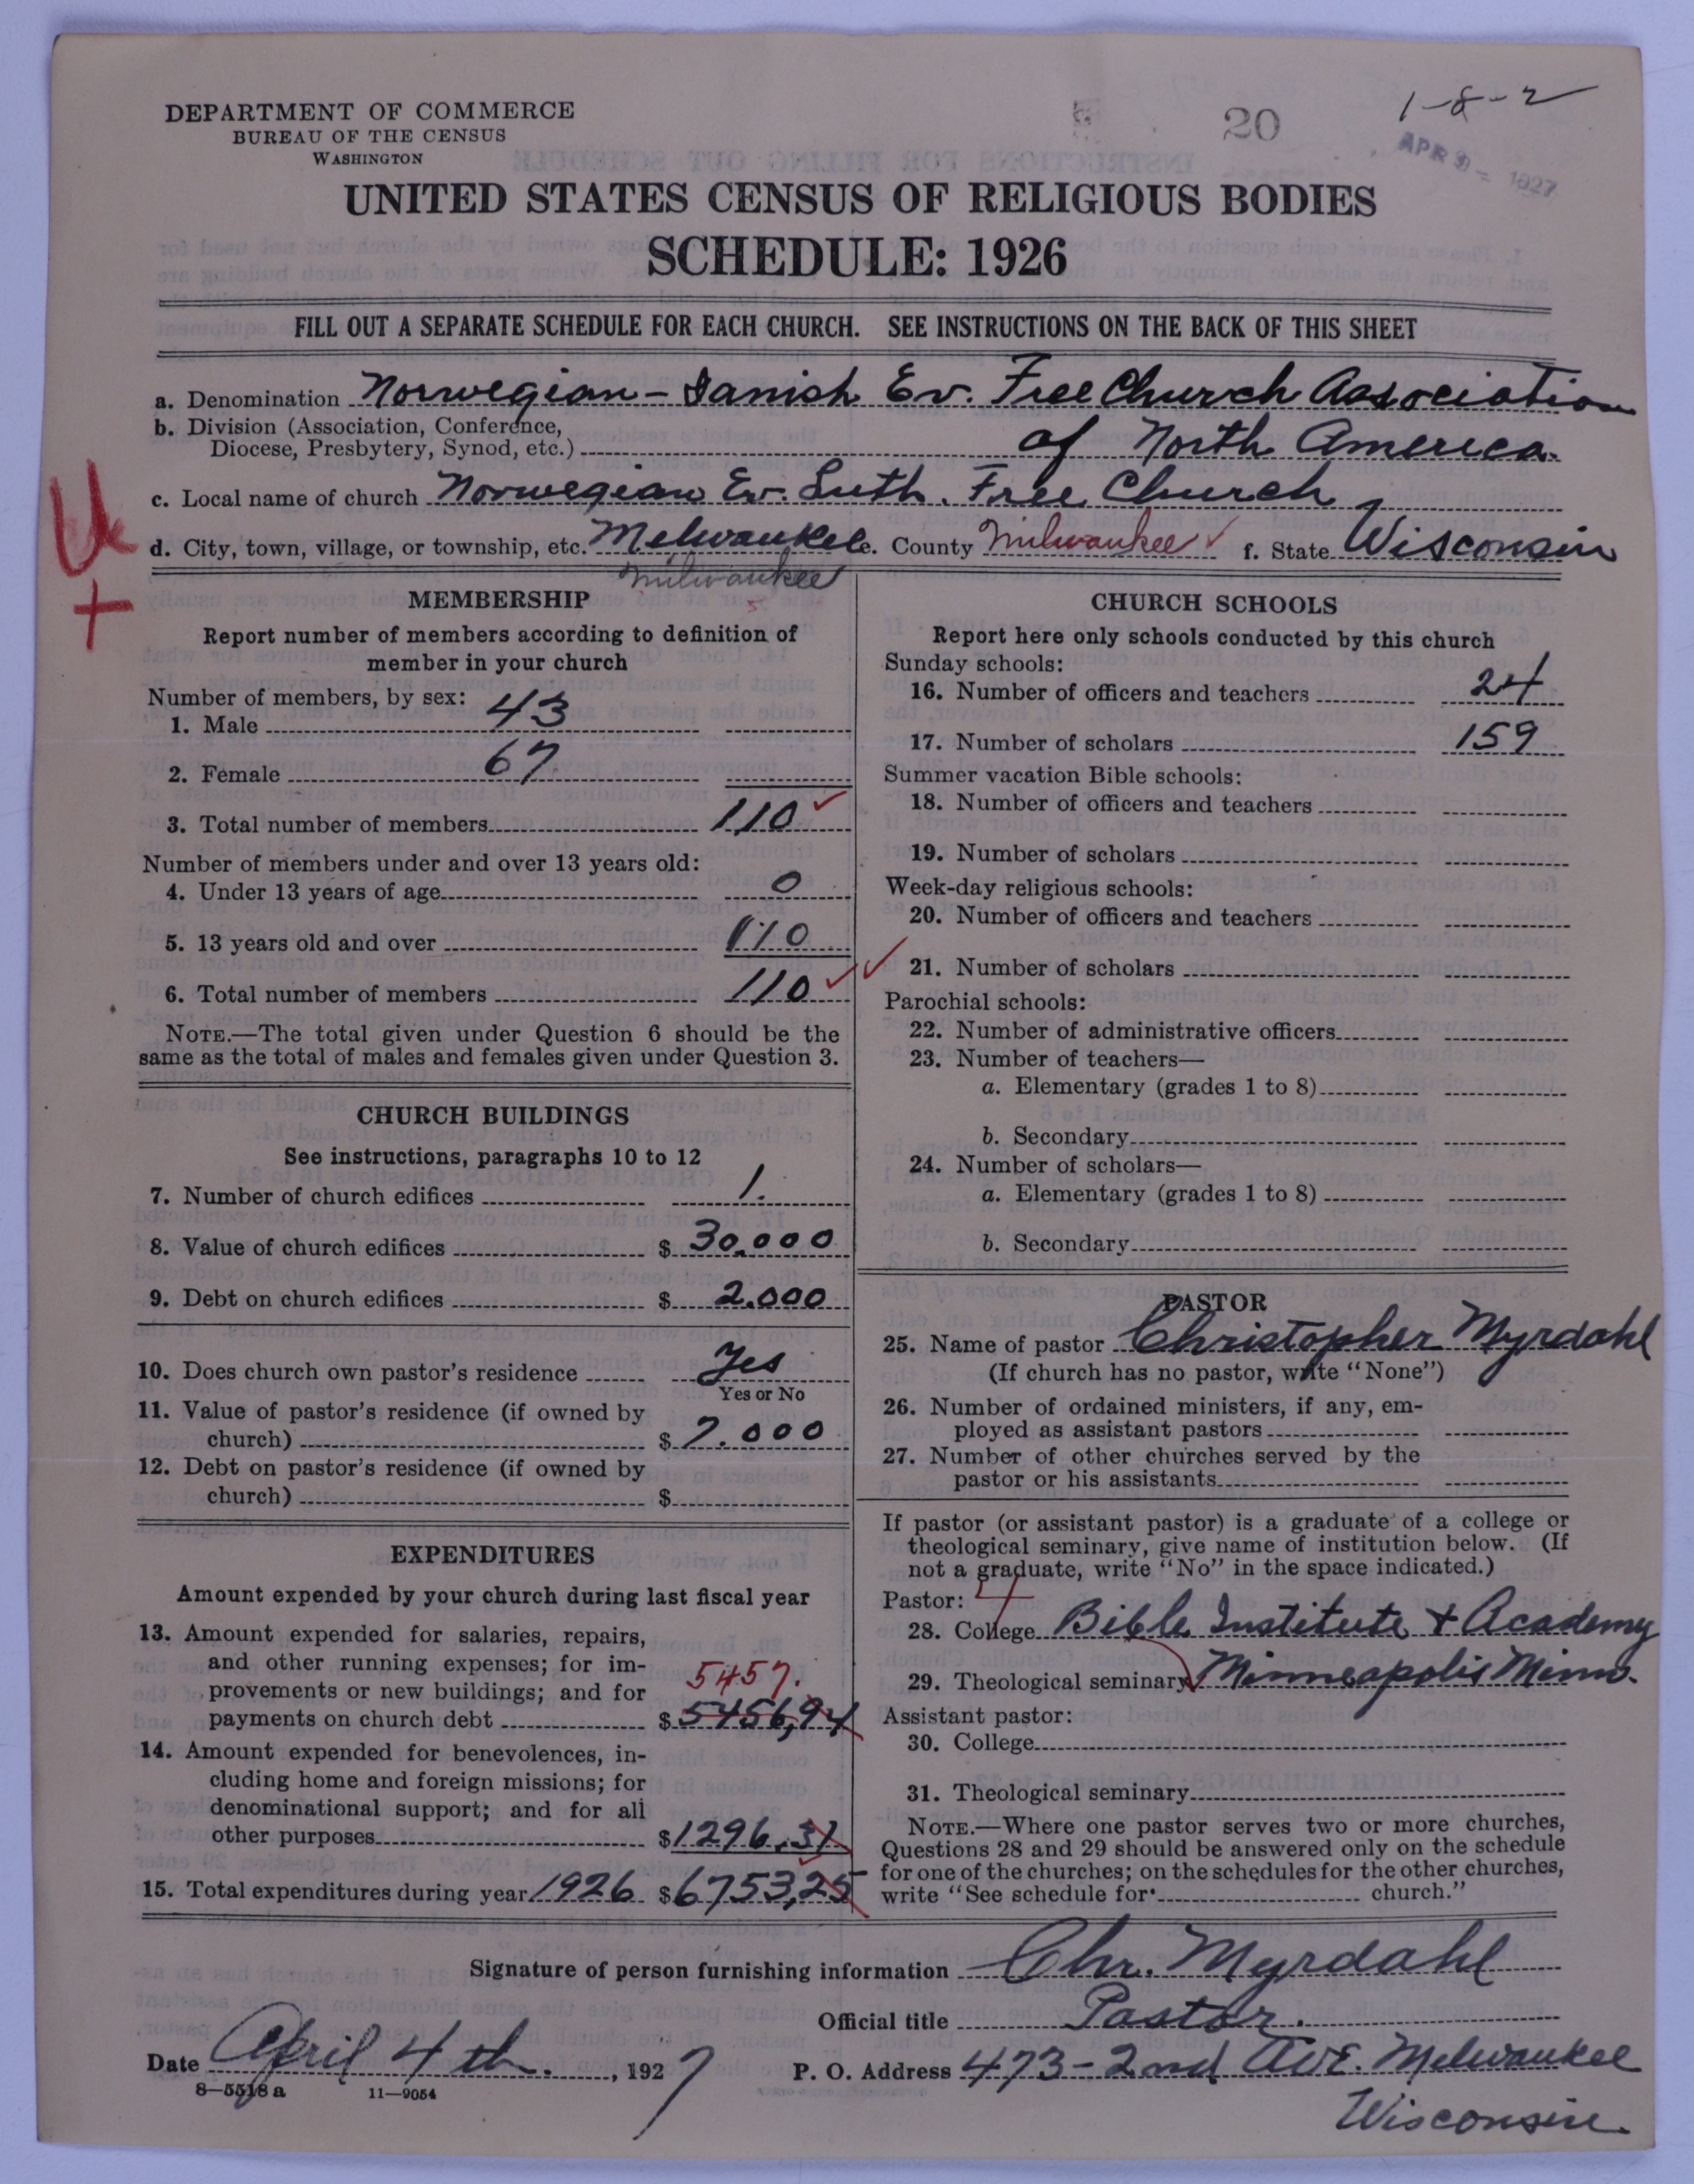 DEPARTMENT OF COMMERCE
BUREAU OF THE CENSUS
WASHINGTON
20
1-8-2
APR 9 - 1927
UNITED STATES CENSUS OF RELIGIOUS BODIES
SCHEDULE: 1926
FILL OUT A SEPARATE SCHEDULE FOR EACH CHURCH. SEE INSTRUCTIONS ON THE BACK OF THIS SHEET
a. Denomination Norwegian-Danish Ev. Free Church Association
b. Division (Association, Conference,
Diocese, Presbytery, Synod, etc.) of North America.
c. Local name of church Norwegian Ev. Luth. Free Church
d. City, town, village, or township, etc. Melwaukee e. County Milwaukee ✓ f. State Wisconsin
Milwaukee
MEMBERSHIP
Report number of members according to definition of
member in your church
Number of members, by sex:
1. Male 43
2. Female 67
3. Total number of members 110 ✓
Number of members under and over 13 years old:
4. Under 13 years of age 0
5. 13 years old and over 110
6. Total number of members 110 ✓✓
NOTE.—The total given under Question 6 should be the
same as the total of males and females given under Question 3.
CHURCH BUILDINGS
See instructions, paragraphs 10 to 12
7. Number of church edifices 1.
8. Value of church edifices $ 30.000
9. Debt on church edifices $ 2.000
10. Does church own pastor's residence Yes
Yes or No
11. Value of pastor's residence (if owned by
church) $ 7.000
12. Debt on pastor's residence (if owned by
church) $
EXPENDITURES
Amount expended by your church during last fiscal year
13. Amount expended for salaries, repairs,
and other running expenses; for im-
provements or new buildings; and for 5457.
payments on church debt $ 5456,94
14. Amount expended for benevolences, in-
cluding home and foreign missions; for
denominational support; and for all
other purposes $ 1296.31
15. Total expenditures during year 1926 $ 6753,25
CHURCH SCHOOLS
Report here only schools conducted by this church
Sunday schools:
16. Number of officers and teachers 24
17. Number of scholars 159
Summer vacation Bible schools:
18. Number of officers and teachers
19. Number of scholars
Week-day religious schools:
20. Number of officers and teachers
21. Number of scholars
Parochial schools:
22. Number of administrative officers
23. Number of teachers—
a. Elementary (grades 1 to 8)
b. Secondary
24. Number of scholars—
a. Elementary (grades 1 to 8)
b. Secondary
PASTOR
25. Name of pastor Christopher Myrdahl
(If church has no pastor, write "None")
26. Number of ordained ministers, if any, em-
ployed as assistant pastors
27. Number of other churches served by the
pastor or his assistants
If pastor (or assistant pastor) is a graduate of a college or
theological seminary, give name of institution below. (If
not a graduate, write "No" in the space indicated.)
Pastor:
28. College Bible Institute & Academy
29. Theological seminary Minneapolis Minn.
Assistant pastor:
30. College
31. Theological seminary
NOTE.—Where one pastor serves two or more churches,
Questions 28 and 29 should be answered only on the schedule
for one of the churches; on the schedules for the other churches,
write "See schedule for church."
Signature of person furnishing information Chr. Myrdahl
Official title Pastor.
Date April 4th., 1927
P. O. Address 473-2nd Ave. Melwaukee
Wisconsin.
8—5518 a 11—9054